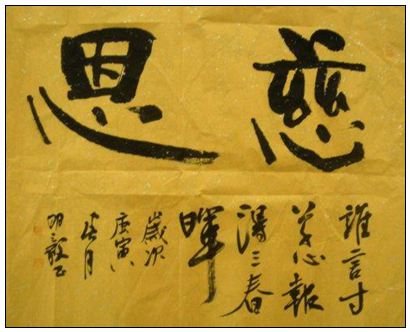 慈恩
誰言寸
草心報
得三春
暉
歲次
庚寅
月